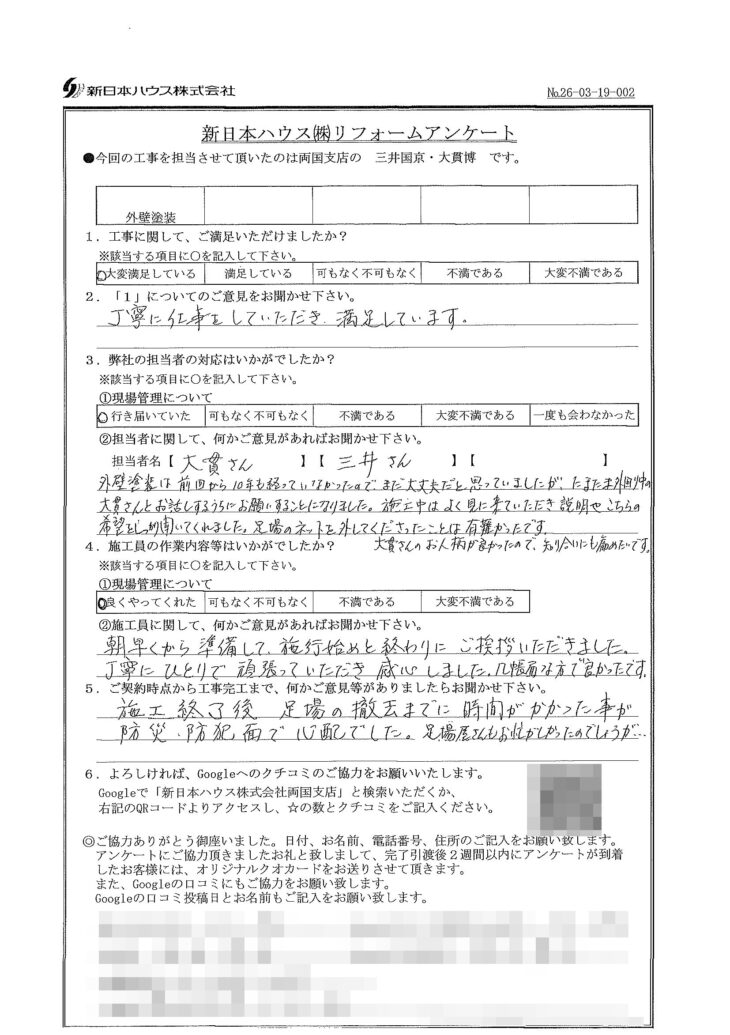 新日本ハウス株式会社
№26-03-19-002
新日本ハウス㈱リフォームアンケート
●今回の工事を担当させて頂いたのは両国支店の 三井国京・大貫博 です。
外壁塗装
1．工事に関して、ご満足いただけましたか？
※該当する項目に○を記入して下さい。
○大変満足している 満足している 可もなく不可もなく 不満である 大変不満である
2．「1」についてのご意見をお聞かせ下さい。
丁寧に仕事をしていただき、満足しています。
3．弊社の担当者の対応はいかがでしたか？
※該当する項目に○を記入して下さい。
①現場管理について
○行き届いていた 可もなく不可もなく 不満である 大変不満である 一度も会わなかった
②担当者に関して、何かご意見があればお聞かせ下さい。
担当者名【 大貫さん 】【 三井さん 】【 】
外壁塗装は前回から10年も経っていなかったので、まだ大丈夫だと思っていましたが、たまたま外回り中の
大貫さんとお話しするうちにお願いすることになりました。施工中はよく見に来ていただき説明やこちらの
希望をしっかり聞いてくれました。足場のネットを外してくださったことは有難かったです。
4．施工員の作業内容等はいかがでしたか？ 大貫さんのお人柄が良かったので、知り合いにも薦めたいです。
※該当する項目に○を記入して下さい。
①現場管理について
○良くやってくれた 可もなく不可もなく 不満である 大変不満である
②施工員に関して、何かご意見があればお聞かせ下さい。
朝早くから準備して、施行始めと終わりにご挨拶いただきました。
丁寧にひとりで頑張っていただき感心しました。几帳面な方で良かったです。
5．ご契約時点から工事完工まで、何かご意見等がありましたらお聞かせ下さい。
施工終了後 足場の撤去までに時間がかかった事が
防災・防犯面で心配でした。足場屋さんもお忙がしかったのでしょうが…
6．よろしければ、Googleへのクチコミのご協力をお願いいたします。
Googleで「新日本ハウス株式会社両国支店」と検索いただくか、
右記のQRコードよりアクセスし、☆の数とクチコミをご記入ください。
◎ご協力ありがとう御座いました。日付、お名前、電話番号、住所のご記入をお願い致します。
アンケートにご協力頂きましたお礼と致しまして、完了引渡後2週間以内にアンケートが到着
したお客様には、オリジナルクオカードをお送りさせて頂きます。
また、Googleの口コミにもご協力をお願い致します。
Googleの口コミ投稿日とお名前もご記入をお願い致します。